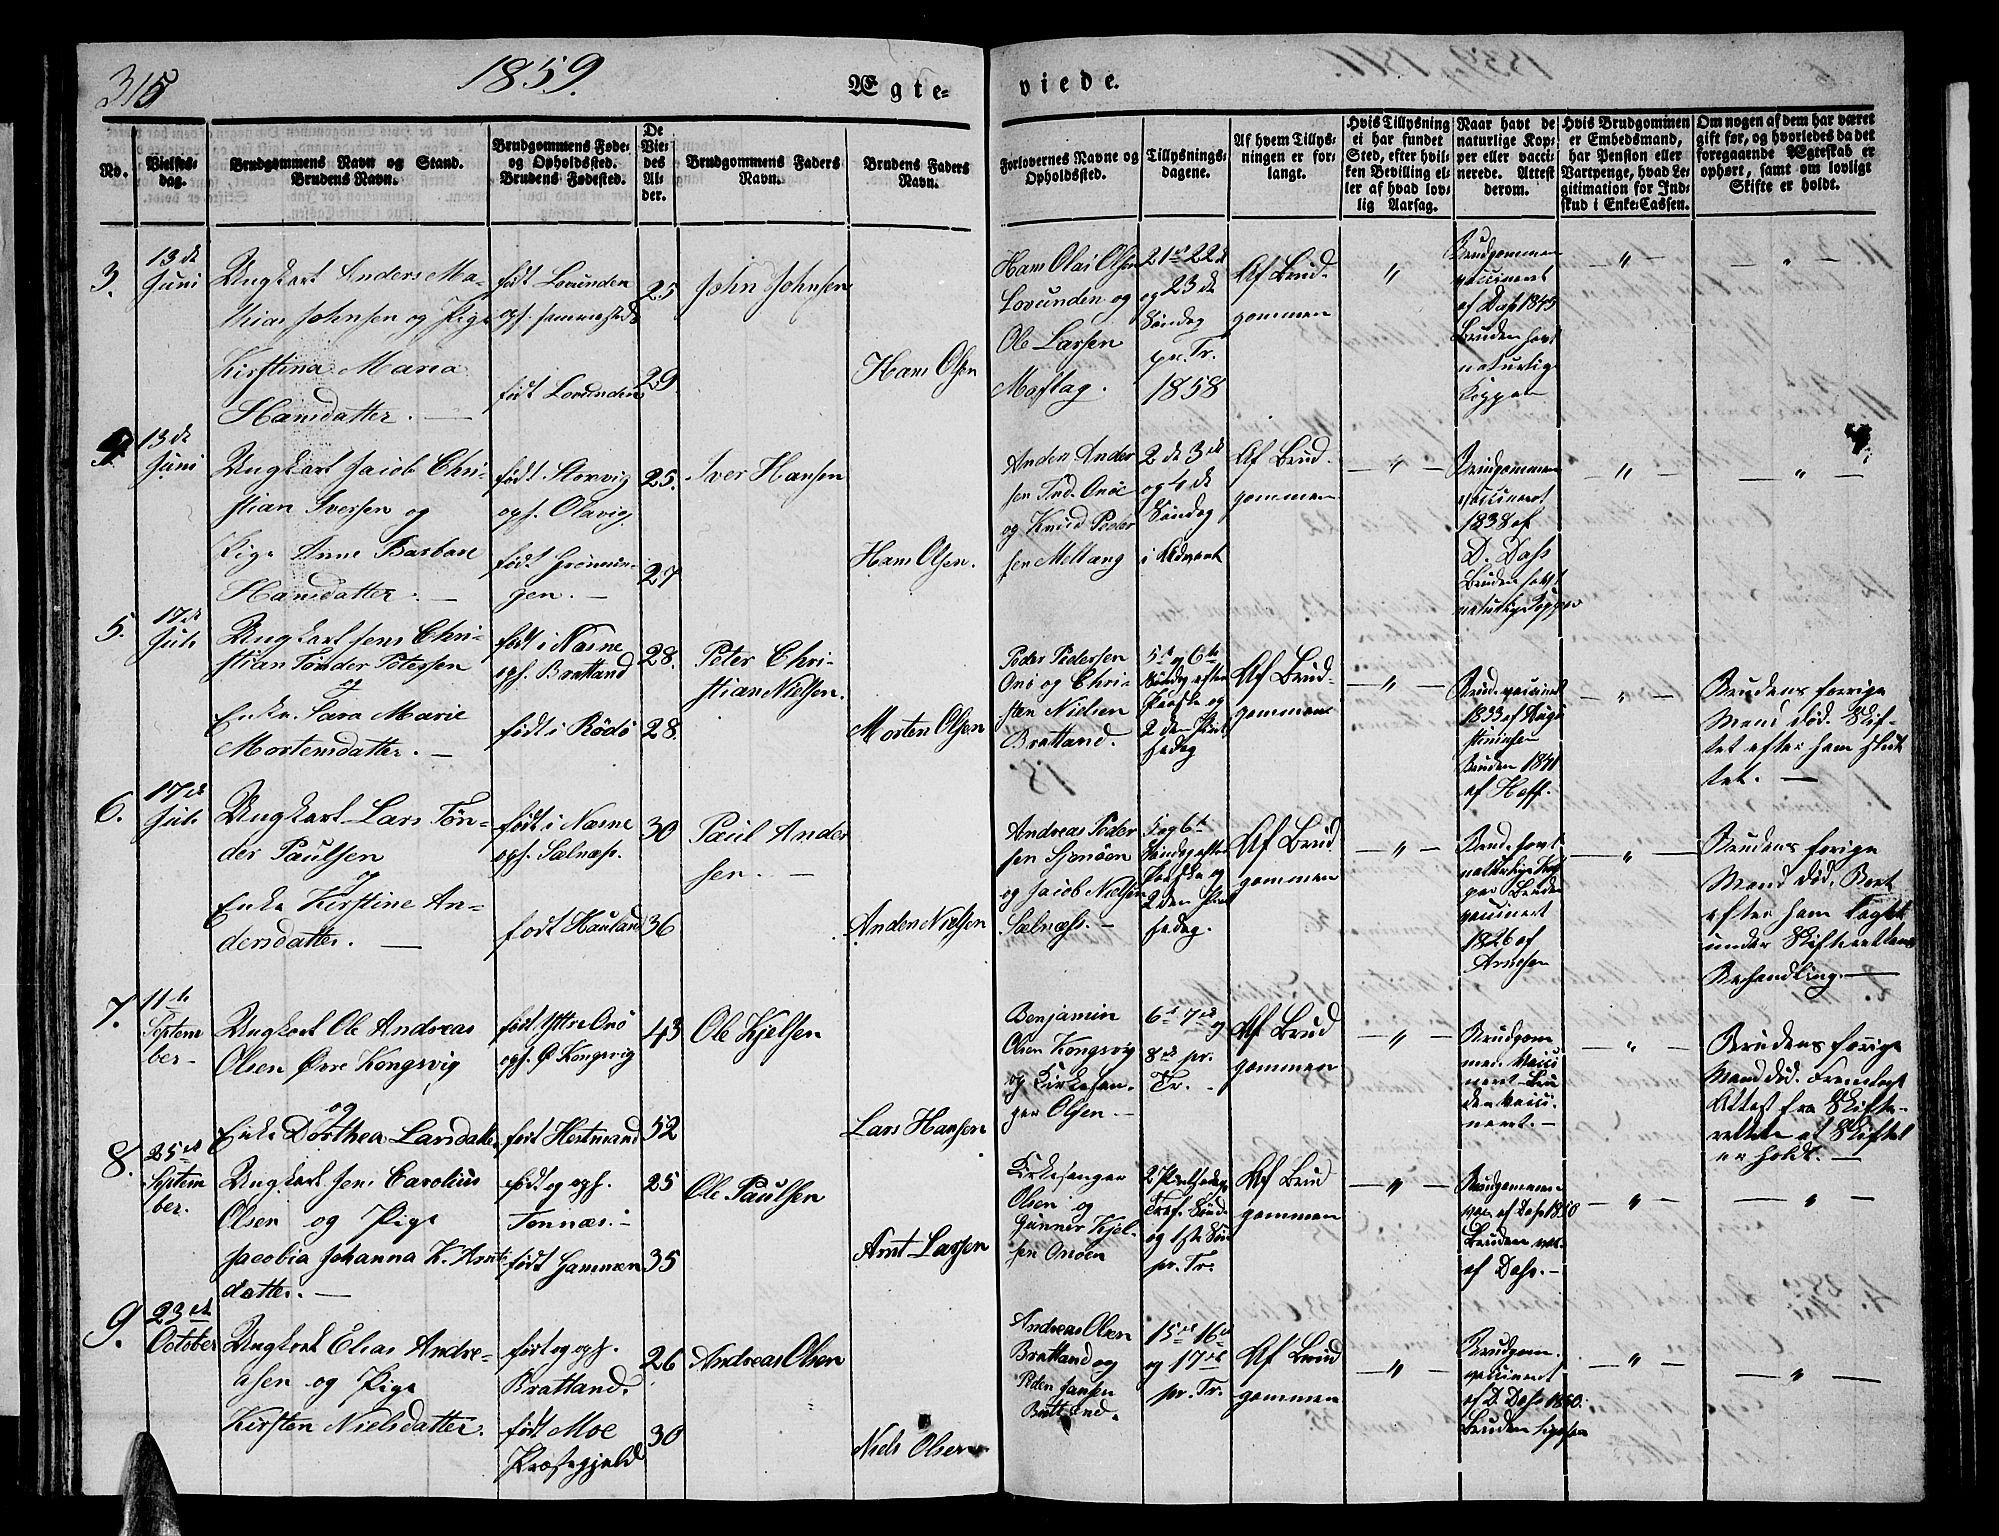 315
1859.
Ægte-
viede.
No.
Vielses-
dag.
Brudgommens Navn og Stand.
Brudens Navn.
Brudgommens Føde-
og Opholdssted.
Brudens Fødested.
De
Vie-
des
Al-
der.
Brudgommens Faders
Navn.
Brudens Faders
Navn.
Forlovernes Navne og
Opholdssted.
Tillysnings-
dagene.
Af hvem Tillys-
ningen er for-
langt.
Hvis Tillysning
ei har fundet
Sted, efter hvil-
ken Bevilling el-
ler af hvad lov-
lig Aarsag.
Naar havt de
naturlige Kop-
per eller vacci-
nerede. Attest
derom.
Hvis Brudgommen
er Embedsmand,
har Pension eller
Vartpenge, hvad Le-
gitimation for Ind-
skud i Enke-Cassen.
Om nogen af dem har været
gift før, og hvorledes da det
foregaaende Ægteskab er
ophørt, samt om lovligt
Skifte er holdt.
3.
13de
Juni
Ungkarl Anders Ma-
thias Johnsen og Pige
Kirstina Maria
Hansdatter. —
født Lovunden
oph. sammesteds
født Lovunden
25
29
John Johnsen
Hans Olsen
Hans Olai Olsen
Lovunden og
Ole Larsen
Moflag.
21de 22de
og 23de
Søndag
pr. Tr.
1858
Af Brud-
gommen
"
Brudgommen
vaccineret
af Dass 1845
Bruden havt
naturlige
Kopper
— " —
"
4.
13de
Juni
Ungkarl Jacob Chri-
stian Iversen og
Pige Anne Barbare
Hansdatter. —
født Storvig
oph. Olavig.
født Grønnin-
gen. —
25.
27
Iver Hansen
Hans Olsen.
Anders Ander
sen Ind. Onøe
og Knud Peder
sen Meltæng
2de 3de
og 4de
Søndag
i Advent
Af Brud-
gommen
— " —
Brudgommen
vaccineret
1838 af
D. Dass
Bruden havt
naturlige Kopper
— " —
— " —
5.
17de
Juli
Ungkarl Jens Chri-
stian Tønder Petersen
og
Enke Sara Marie
Mortensdatter. —
født i Næsne
oph. Bratland
født i Rödö
28.
28.
Peter Chri-
stian Nielsen.
Morten Olsen
Peder Pedersen
Onø og Chri-
sten Nielsen
Bratland.
5te og 6te
Søndag efter
Paaske og
2den Pint
sedag.
Af Brud-
gommen
— " —
Brud. vaccineret
1833 af Augu
stinusen
Bruden 1841
af Hoff.
— " —
Brudens forrige
Mand død. Skif-
tet efter ham slut
tet. —
6.
17de
Juli
Ungkarl Lars Tøn-
der Paulsen
og
Enke Kirstine An-
dersdatter. —
født i Næsne
oph. Sælnæs.
født Hauland
30
36
Paul Ander
sen. —
Anders Nielsen
Andreas Peder
sen Sjonøen
og Jacob Nielsen
Sælnæs. —
5 og 6te
Søndag efter
Paaske og
2den Pint
sedag.
Af Brud
gommen
— " —
Brud. havt
naturlige Kop
per Bruden
vaccineret
1826 af
Arnesen
— " —
Brudens forrige
Mand død. Boet
efter ham taget
under Skifterettens
Behandling. —
7.
11te
Septem
ber
Ungkarl Ole Andreas
Olsen Øvre Kongsvig
og
Enke Dorthea Larsdatter
født Yttre Onø
oph. Ø Kongsvig
født Hestmand
43
52
Ole Kjelsen
Lars Hansen
Benjamin
Olsen Kongsvig
og Kirkesan-
ger Olsen —
6te 7de og
8de pr.
Tr. —
Af Brud
gommen
— " —
Brudgom-
men vacci
neret Bru
den vacci-
neret. —
— " —
Brudens forrige
Mand død. Fremlagt
Attest fra Skifte-
retten at Skiftet
er holdt. —
8.
25de
Septem
ber.
Ungkarl Jens Carolius
Olsen og Pige
Jacobia Johanna K. Arnts
datter. —
født og oph.
Tonnæs. —
født Hammen
25
35
Ole Paulsen
Arnt Larsen
Kirkesanger
Olsen og
Gunner Kjel-
sen Onøen
pr. Tr.
Af Brud
gommen
— " —
Brudgommen
vac. af Dass 1850
Bruden vac.
af Dass. —
— " —
"
9.
23de
October
Ungkarl Elias Andre-
asen og Pige
Kirsten Nielsdatter.
født og oph.
Bratland.
født Moe
Præstegjeld
26
30
Andreas Olsen
Niels Olsen
Andreas Olsen
Bratland og
Peder Jansen
Bratland.
15de 16de
og 17de
pr. Tr.
Af Brud
gommen
— " —
Brudgom.
vaccineret
af D. Dass 1850.
Bruden ligesaa
— " —
— " —